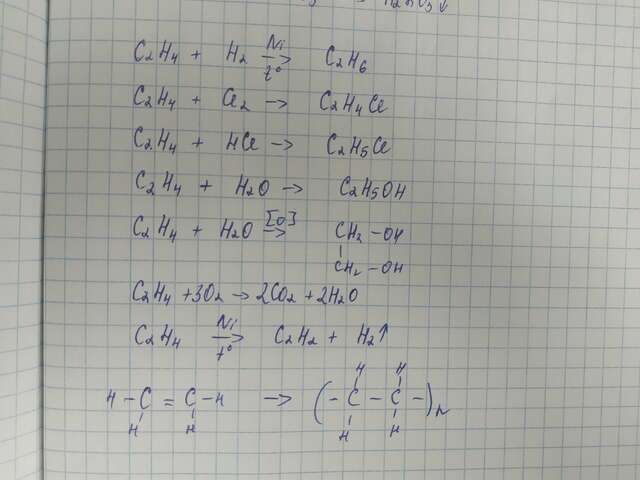 C₂H₄ + H₂ Ni t° → C₂H₆
C₂H₄ + Cl₂ → C₂H₄Cl
C₂H₄ + HCl → C₂H₅Cl
C₂H₄ + H₂O → C₂H₅OH
C₂H₄ + H₂O [O] → CH₂-OH
CH₂-OH
C₂H₄ + 3O₂ → 2CO₂ + 2H₂O
C₂H₄ Ni t° → C₂H₂ + H₂↑
H H
H - C = C - H → (- C - C -)n
H H H H